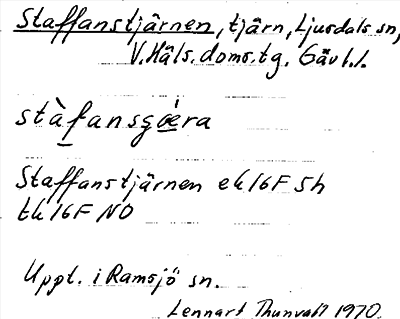 Staffanstjärnen, tjärn, Ljusdals sn,
V. Häls. doms. tg. Gävl. l.
stàfansgœ́ra
Staffanstjärnen ek 16F 5h
tk 16F NO
Uppt. i Ramsjö sn.
Lennart Thunvall 1970.